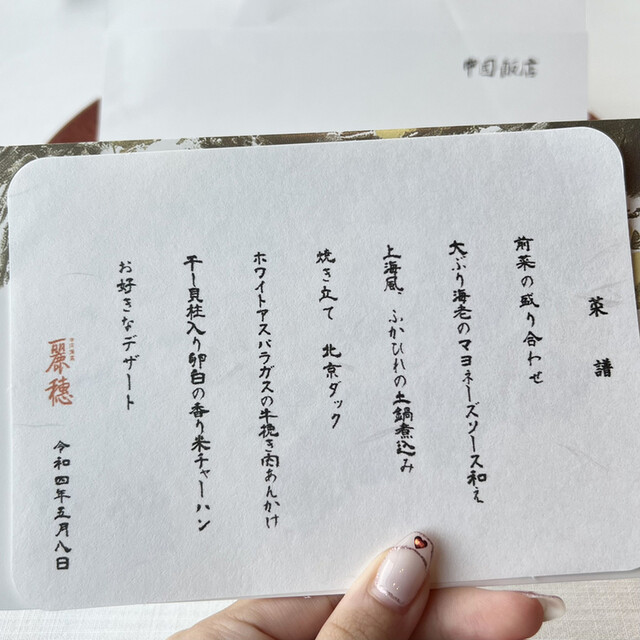 中国飯店
菜譜
前菜の盛り合わせ
大ぶり海老のマヨネーズソース和え
上海風、ふかひれの土鍋煮込み
焼き立て 北京ダック
ホワイトアスパラガスの牛挽き肉あんかけ
干し貝柱入り卵白の香り米チャーハン
お好きなデザート
麗穂
令和四年五月八日